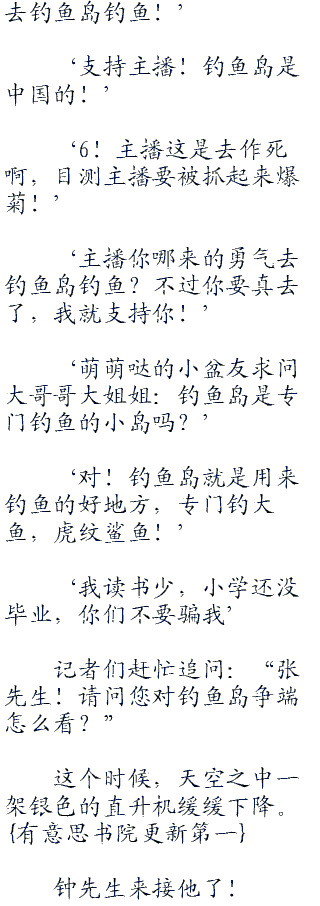 去钓鱼岛钓鱼！’
‘支持主播！钓鱼岛是
中国的！’
‘6！主播这是去作死
啊，目测主播要被抓起来爆
菊！’
‘主播你哪来的勇气去
钓鱼岛钓鱼？不过你要真去
了，我就支持你！’
‘萌萌哒的小盆友求问
大哥哥大姐姐：钓鱼岛是专
门钓鱼的小岛吗？’
‘对！钓鱼岛就是用来
钓鱼的好地方，专门钓大
鱼，虎纹鲨鱼！’
‘我读书少，小学还没
毕业，你们不要骗我’
记者们赶忙追问：“张
先生！请问您对钓鱼岛争端
怎么看？”
这个时候，天空之中一
架银色的直升机缓缓下降。
{有意思书院更新第一}
钟先生来接他了！